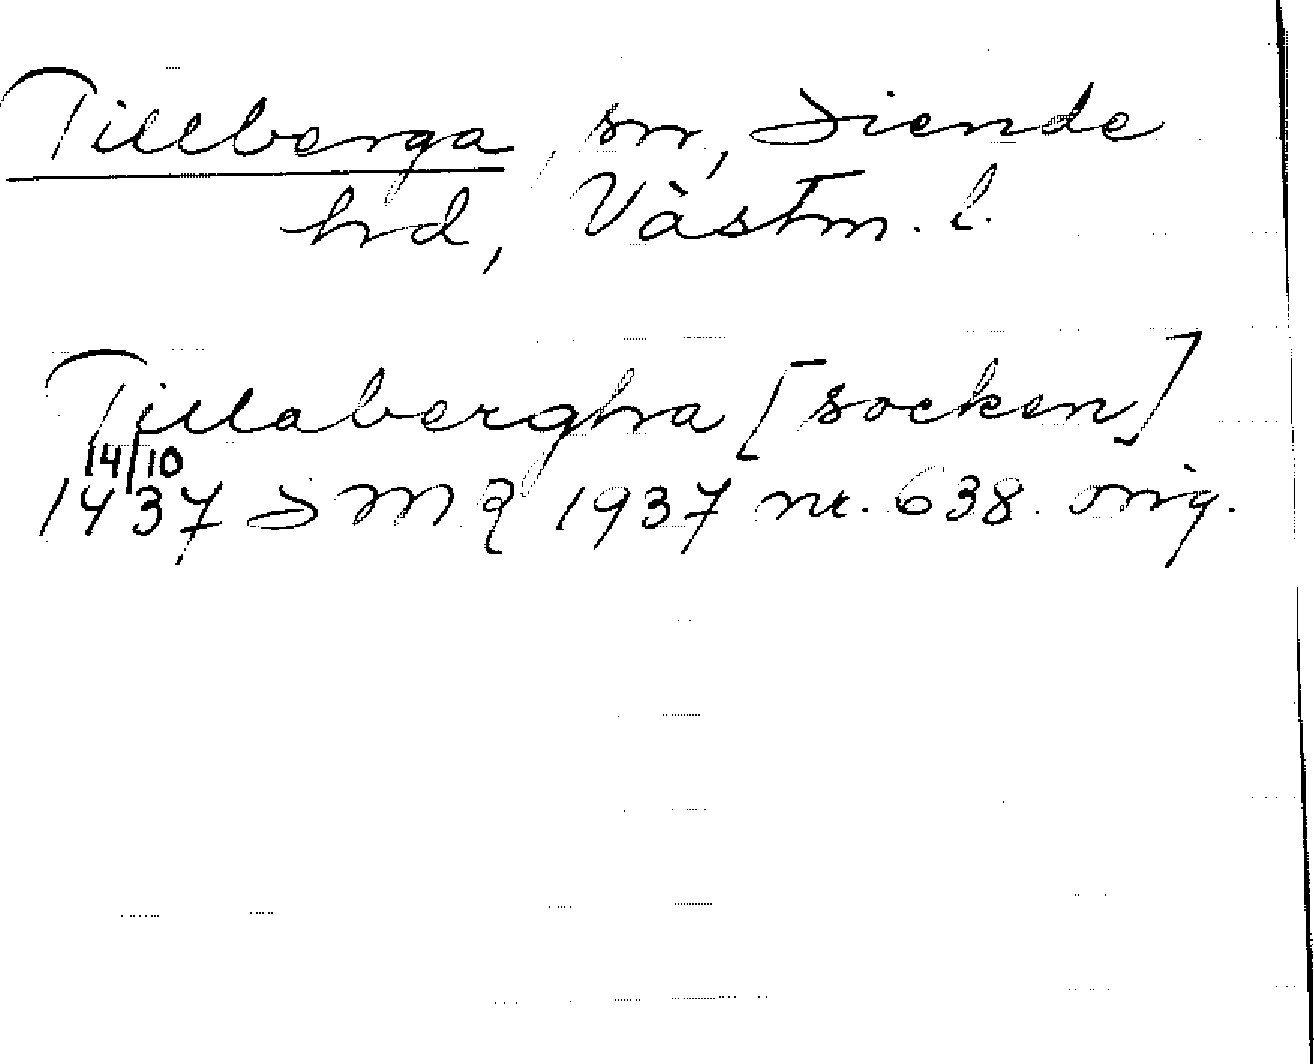 Tillberga, sn, Siende
hd, Västm. l.
Tillabergha [socken]
14/10
1437 SMR 1937 nr. 638. orig.